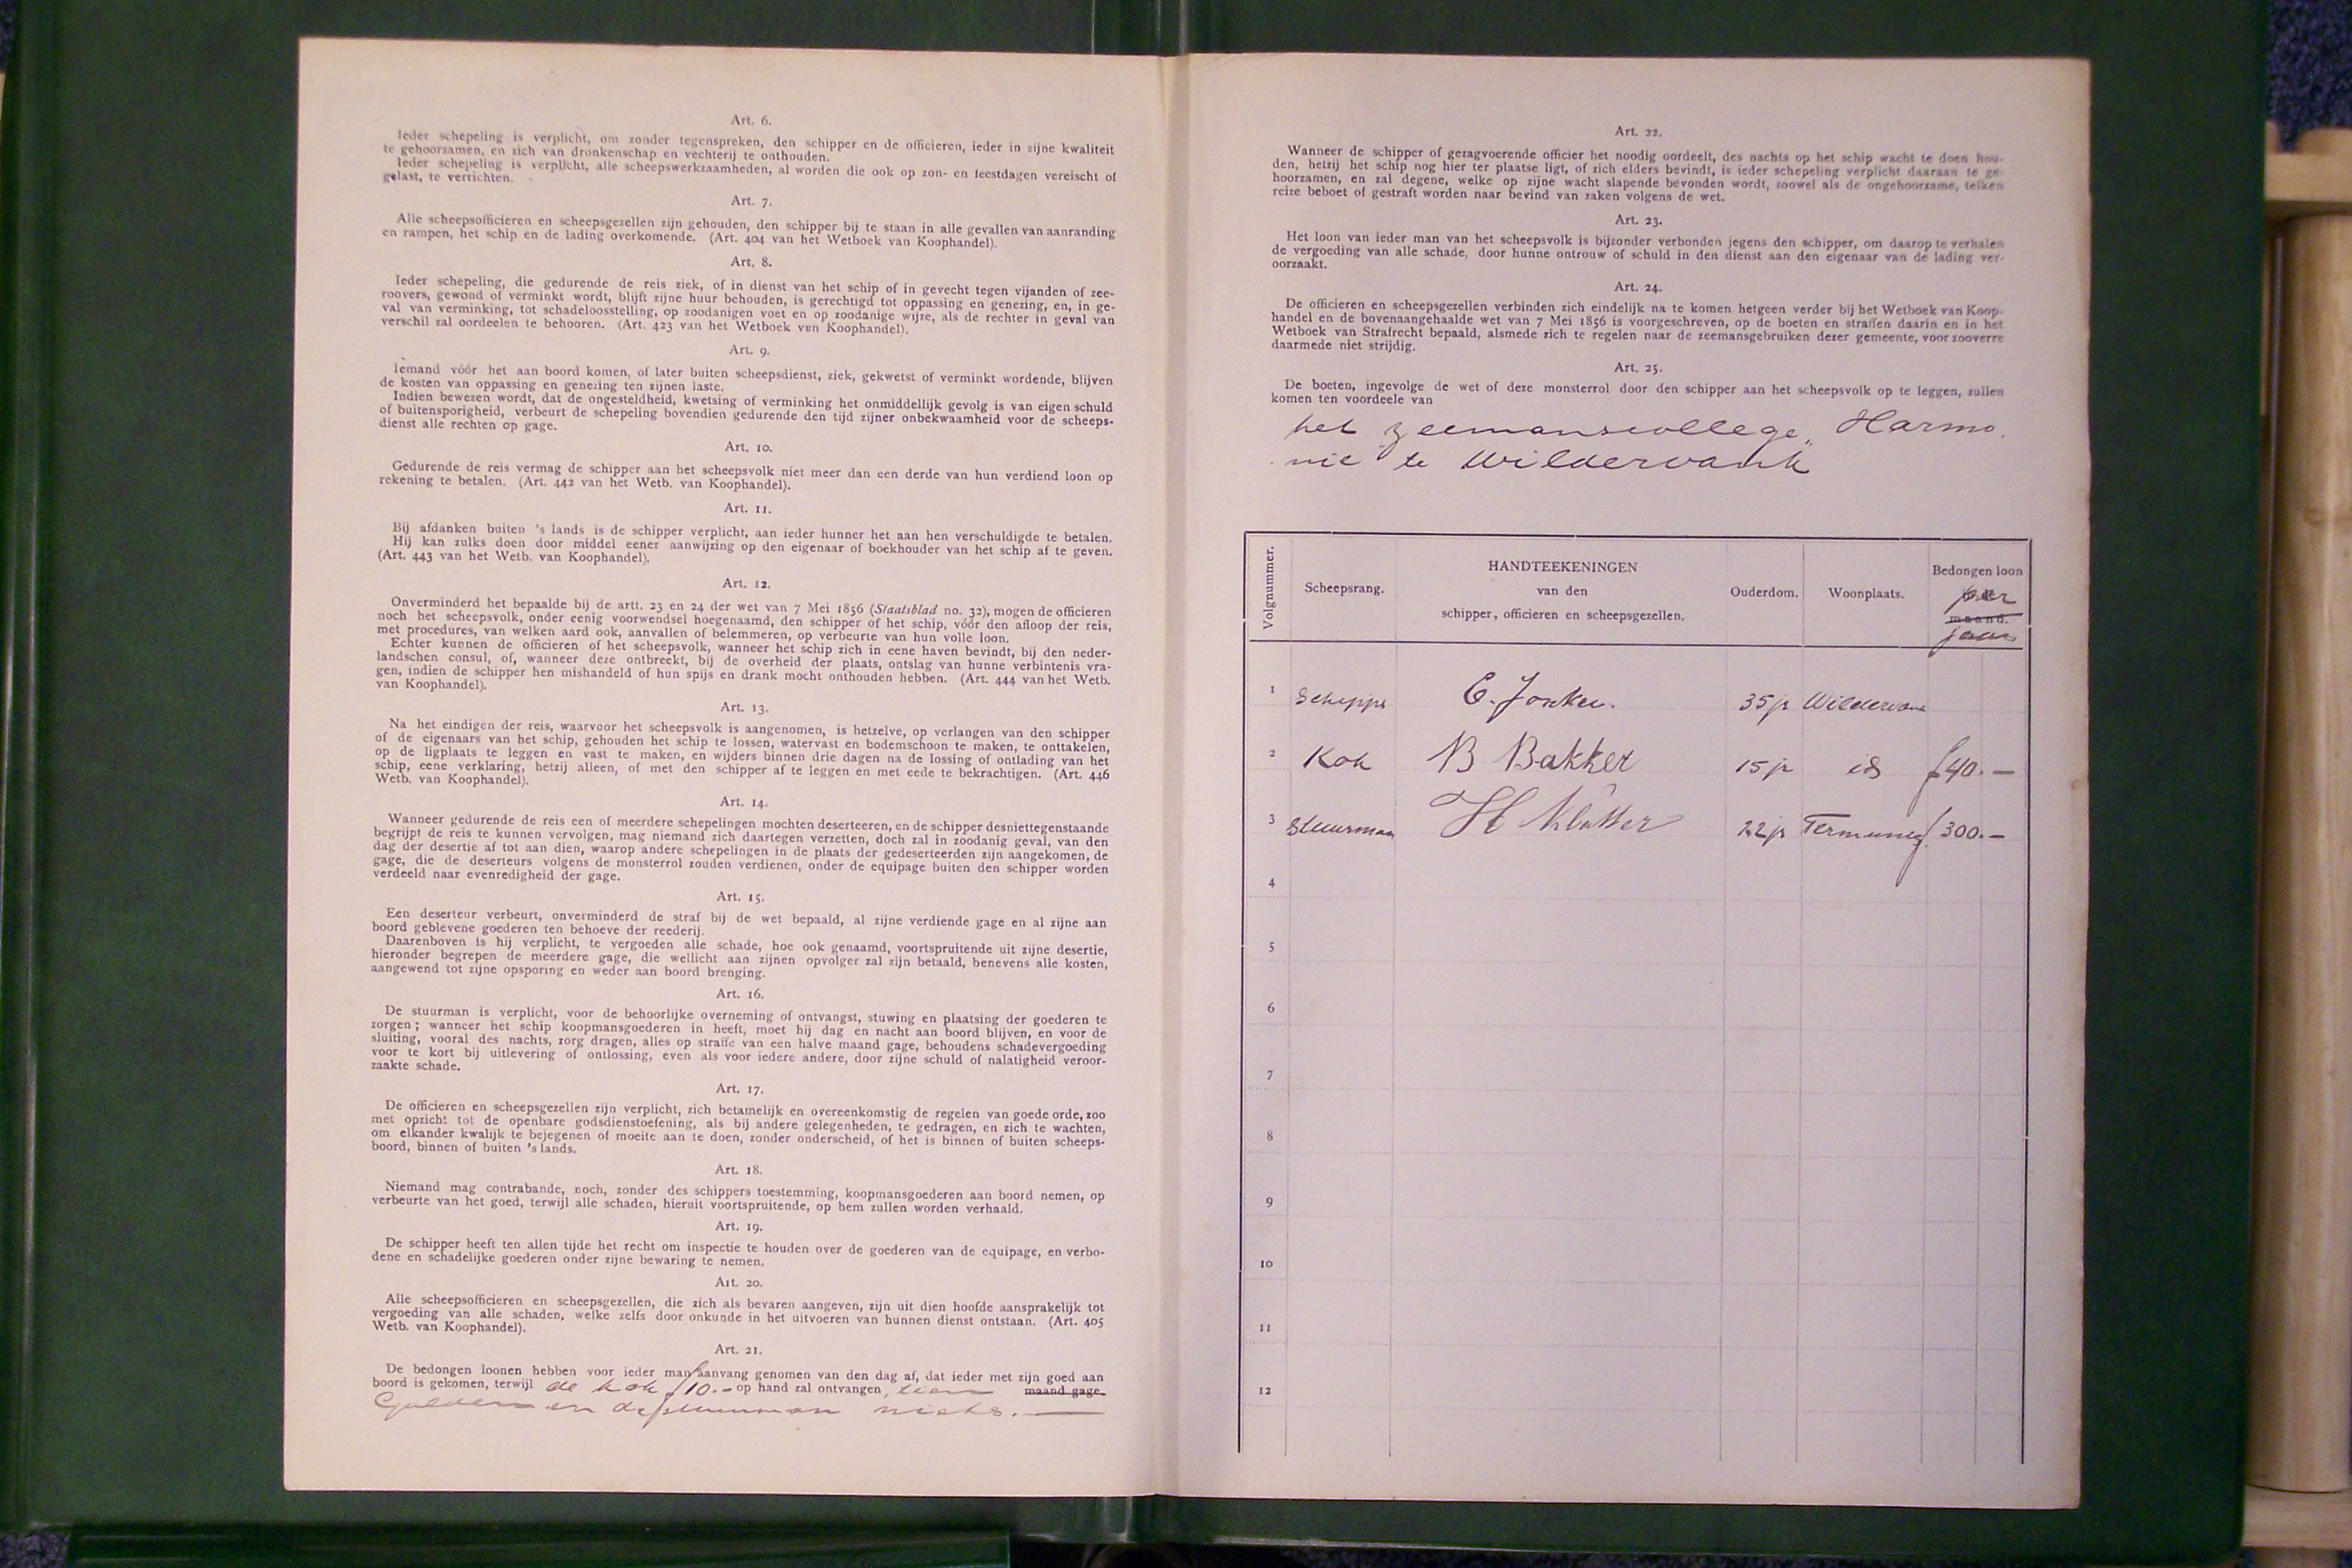 Art. 6.
Ieder schepeling is verplicht, om zonder tegenspreken, den schipper en de officieren, ieder in zijne kwaliteit
te gehoorzamen, en zich van dronkenschap en vechterij te onthouden.
Ieder schepeling is verplicht, alle scheepswerkzaamheden, al worden die ook op zon- en feestdagen vereischt of
gelast, te verrichten.
Art. 7.
Alle scheepsofficieren en scheepsgezellen zijn gehouden, den schipper bij te staan in alle gevallen van aanranding
en rampen, het schip en de lading overkomende. (Art. 404 van het Wetboek van Koophandel).
Art. 8.
Ieder schepeling, die gedurende de reis ziek, of in dienst van het schip of in gevecht tegen vijanden of zee-
roovers, gewond of verminkt wordt, blijft zijne huur behouden, is gerechtigd tot oppassing en genezing, en, in ge-
val van verminking, tot schadeloosstelling, op zoodanigen voet en op zoodanige wijze, als de rechter in geval van
verschil zal oordeelen te behooren. (Art. 423 van het Wetboek ven Koophandel).
Art. 9.
Iemand vóór het aan boord komen, of later buiten scheepsdienst, ziek, gekwetst of verminkt wordende, blijven
de kosten van oppassing en genezing ten zijnen laste.
Indien bewezen wordt, dat de ongesteldheid, kwetsing of verminking het onmiddellijk gevolg is van eigen schuld
of buitensporigheid, verbeurt de schepeling bovendien gedurende den tijd zijner onbekwaamheid voor de scheeps-
dienst alle rechten op gage.
Art. 10.
Gedurende de reis vermag de schipper aan het scheepsvolk niet meer dan een derde van hun verdiend loon op
rekening te betalen. (Art. 442 van het Wetb. van Koophandel).
Art. 11.
Bij afdanken buiten 's lands is de schipper verplicht, aan ieder hunner het aan hen verschuldigde te betalen.
Hij kan zulks doen door middel eener aanwijzing op den eigenaar of boekhouder van het schip af te geven.
(Art. 443 van het Wetb. van Koophandel).
Art. 12.
Onverminderd het bepaalde bij de artt. 23 en 24 der wet van 7 Mei 1856 (Staatsblad no. 32), mogen de officieren
noch het scheepsvolk, onder eenig voorwendsel hoegenaamd, den schipper of het schip, vóór den afloop der reis,
met procedures, van welken aard ook, aanvallen of belemmeren, op verbeurte van hun volle loon.
Echter kunnen de officieren of het scheepsvolk, wanneer het schip zich in eene haven bevindt, bij den neder-
landschen consul, of, wanneer deze ontbreekt, bij de overheid der plaats, ontslag van hunne verbintenis vra-
gen, indien de schipper hen mishandeld of hun spijs en drank mocht onthouden hebben. (Art. 444 van het Wetb.
van Koophandel).
Art. 13.
Na het eindigen der reis, waarvoor het scheepsvolk is aangenomen, is hetzelve, op verlangen van den schipper
of de eigenaars van het schip, gehouden het schip te lossen, watervast en bodemschoon te maken, te onttakelen,
op de ligplaats te leggen en vast te maken, en wijders binnen drie dagen na de lossing of ontlading van het
schip, eene verklaring, hetzij alleen, of met den schipper af te leggen en met eede te bekrachtigen. (Art. 446
Wetb. van Koophandel).
Art. 14.
Wanneer gedurende de reis een of meerdere schepelingen mochten deserteeren, en de schipper desniettegenstaande
begrijpt de reis te kunnen vervolgen, mag niemand zich daartegen verzetten, doch zal in zoodanig geval, van den
dag der desertie af tot aan dien, waarop andere schepelingen in de plaats der gedeserteerden zijn aangekomen, de
gage, die de deserteurs volgens de monsterrol zouden verdienen, onder de equipage buiten den schipper worden
verdeeld naar evenredigheid der gage.
Art. 15.
Een deserteur verbeurt, onverminderd de straf bij de wet bepaald, al zijne verdiende gage en al zijne aan
boord geblevene goederen ten behoeve der reederij.
Daarenboven is hij verplicht, te vergoeden alle schade, hoe ook genaamd, voortspruitende uit zijne desertie,
hieronder begrepen de meerdere gage, die wellicht aan zijnen opvolger zal zijn betaald, benevens alle kosten,
aangewend tot zijne opsporing en weder aan boord brenging.
Art. 16.
De stuurman is verplicht, voor de behoorlijke overneming of ontvangst, stuwing en plaatsing der goederen te
zorgen; wanneer het schip koopmansgoederen in heeft, moet hij dag en nacht aan boord blijven, en voor de
sluiting, vooral des nachts, zorg dragen, alles op straffe van een halve maand gage, behoudens schadevergoeding
voor te kort bij uitlevering of ontlossing, even als voor iedere andere, door zijne schuld of nalatigheid veroor-
zaakte schade.
Art. 17.
De officieren en scheepsgezellen zijn verplicht, zich betamelijk en overeenkomstig de regelen van goede orde, zoo
met opzicht tot de openbare godsdienstoefening, als bij andere gelegenheden, te gedragen, en zich te wachten,
om elkander kwalijk te bejegenen of moeite aan te doen, zonder onderscheid, of het is binnen of buiten scheeps-
boord, binnen of buiten 's lands.
Art. 18.
Niemand mag contrabande, noch, zonder des schippers toestemming, koopmansgoederen aan boord nemen, op
verbeurte van het goed, terwijl alle schaden, hieruit voortspruitende, op hem zullen worden verhaald.
Art. 19.
De schipper heeft ten allen tijde het recht om inspectie te houden over de goederen van de equipage, en verbo-
dene en schadelijke goederen onder zijne bewaring te nemen.
Art. 20.
Alle scheepsofficieren en scheepsgezellen, die zich als bevaren aangeven, zijn uit dien hoofde aansprakelijk tot
vergoeding van alle schaden, welke zelfs door onkunde in het uitvoeren van hunnen dienst ontstaan. (Art. 405
Wetb. van Koophandel).
Art. 21.
De bedongen loonen hebben voor ieder man aanvang genomen van den dag af, dat ieder met zijn goed aan
boord is gekomen, terwijl de kok f10.- op hand zal ontvangen, tien maand gage
Gulden en de stuurman niets.
Art. 22.
Wanneer de schipper of gezagvoerende officier het noodig oordeelt, des nachts op het schip wacht te doen hou-
den, hetzij het schip nog hier ter plaatse ligt, of zich elders bevindt, is ieder schepeling verplicht daaraan te ge-
hoorzamen, en zal degene, welke op zijne wacht slapende bevonden wordt, zoowel als de ongehoorzame, telken
reize beboet of gestraft worden naar bevind van zaken volgens de wet.
Art. 23.
Het loon van ieder man van het scheepsvolk is bijzonder verbonden jegens den schipper, om daarop te verhalen
de vergoeding van alle schade, door hunne ontrouw of schuld in den dienst aan den eigenaar van de lading ver-
oorzaakt.
Art. 24.
De officieren en scheepsgezellen verbinden zich eindelijk na te komen hetgeen verder bij het Wetboek van Koop-
handel en de bovenaangehaalde wet van 7 Mei 1856 is voorgeschreven, op de boeten en straffen daarin en in het
Wetboek van Strafrecht bepaald, alsmede zich te regelen naar de zeemansgebruiken dezer gemeente, voor zooverre
daarmede niet strijdig.
Art. 25.
De boeten, ingevolge de wet of deze monsterrol door den schipper aan het scheepsvolk op te leggen, zullen
komen ten voordeele van
het zeemanscollege „Harmo-
nie" te Wildervank
Volgnummer.
Scheepsrang.
HANDTEEKENINGEN
van den
schipper, officieren en scheepsgezellen.
Ouderdom.
Woonplaats.
Bedongen loon
per
maand.
jaar
1 Schipper 35 jr Wildervank
2 Kok B Bakker 15 jr id f40.—
3 Stuurman 22 jr f300.—
4
5
6
7
8
9
10
11
12